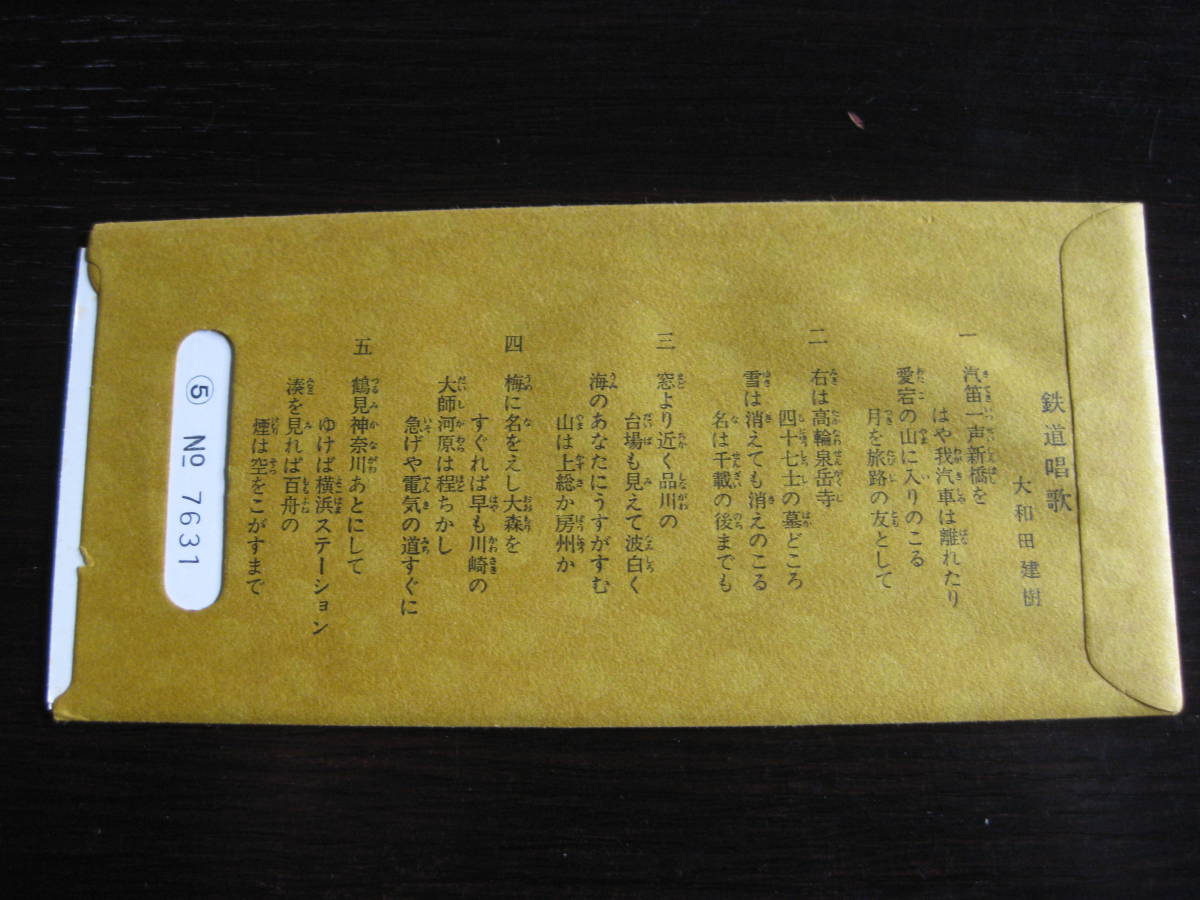 鉄道唱歌
大和田建樹
一 汽笛一声新橋を
はや我汽車は離れたり
愛宕の山に入りのこる
月を旅路の友として
二 右は高輪泉岳寺
四十七士の墓どころ
雪は消えても消えのこる
名は千載の後までも
三 窓より近く品川の
台場も見えて波白く
海のあなたにうすがすむ
山は上総か房州か
四 梅に名をえし大森を
すぐれば早も川崎の
大師河原は程ちかし
急げや電気の道すぐに
五 鶴見神奈川あとにして
ゆけば横浜ステーション
湊を見れば百舟の
煙は空をこがすまで
⑤ № 7631